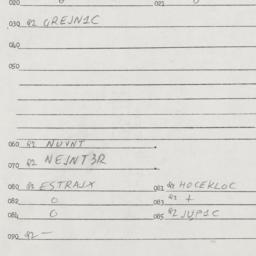 020 0 021 0
030 42 GREJN1C
040
050
060 42 NUVNT
070 42 NEJNT3R
080 43 ESTRAJX 081 43 HOCEKLOC
082 0 083 43 +
084 0 085 42 JUP1C
090 42 —